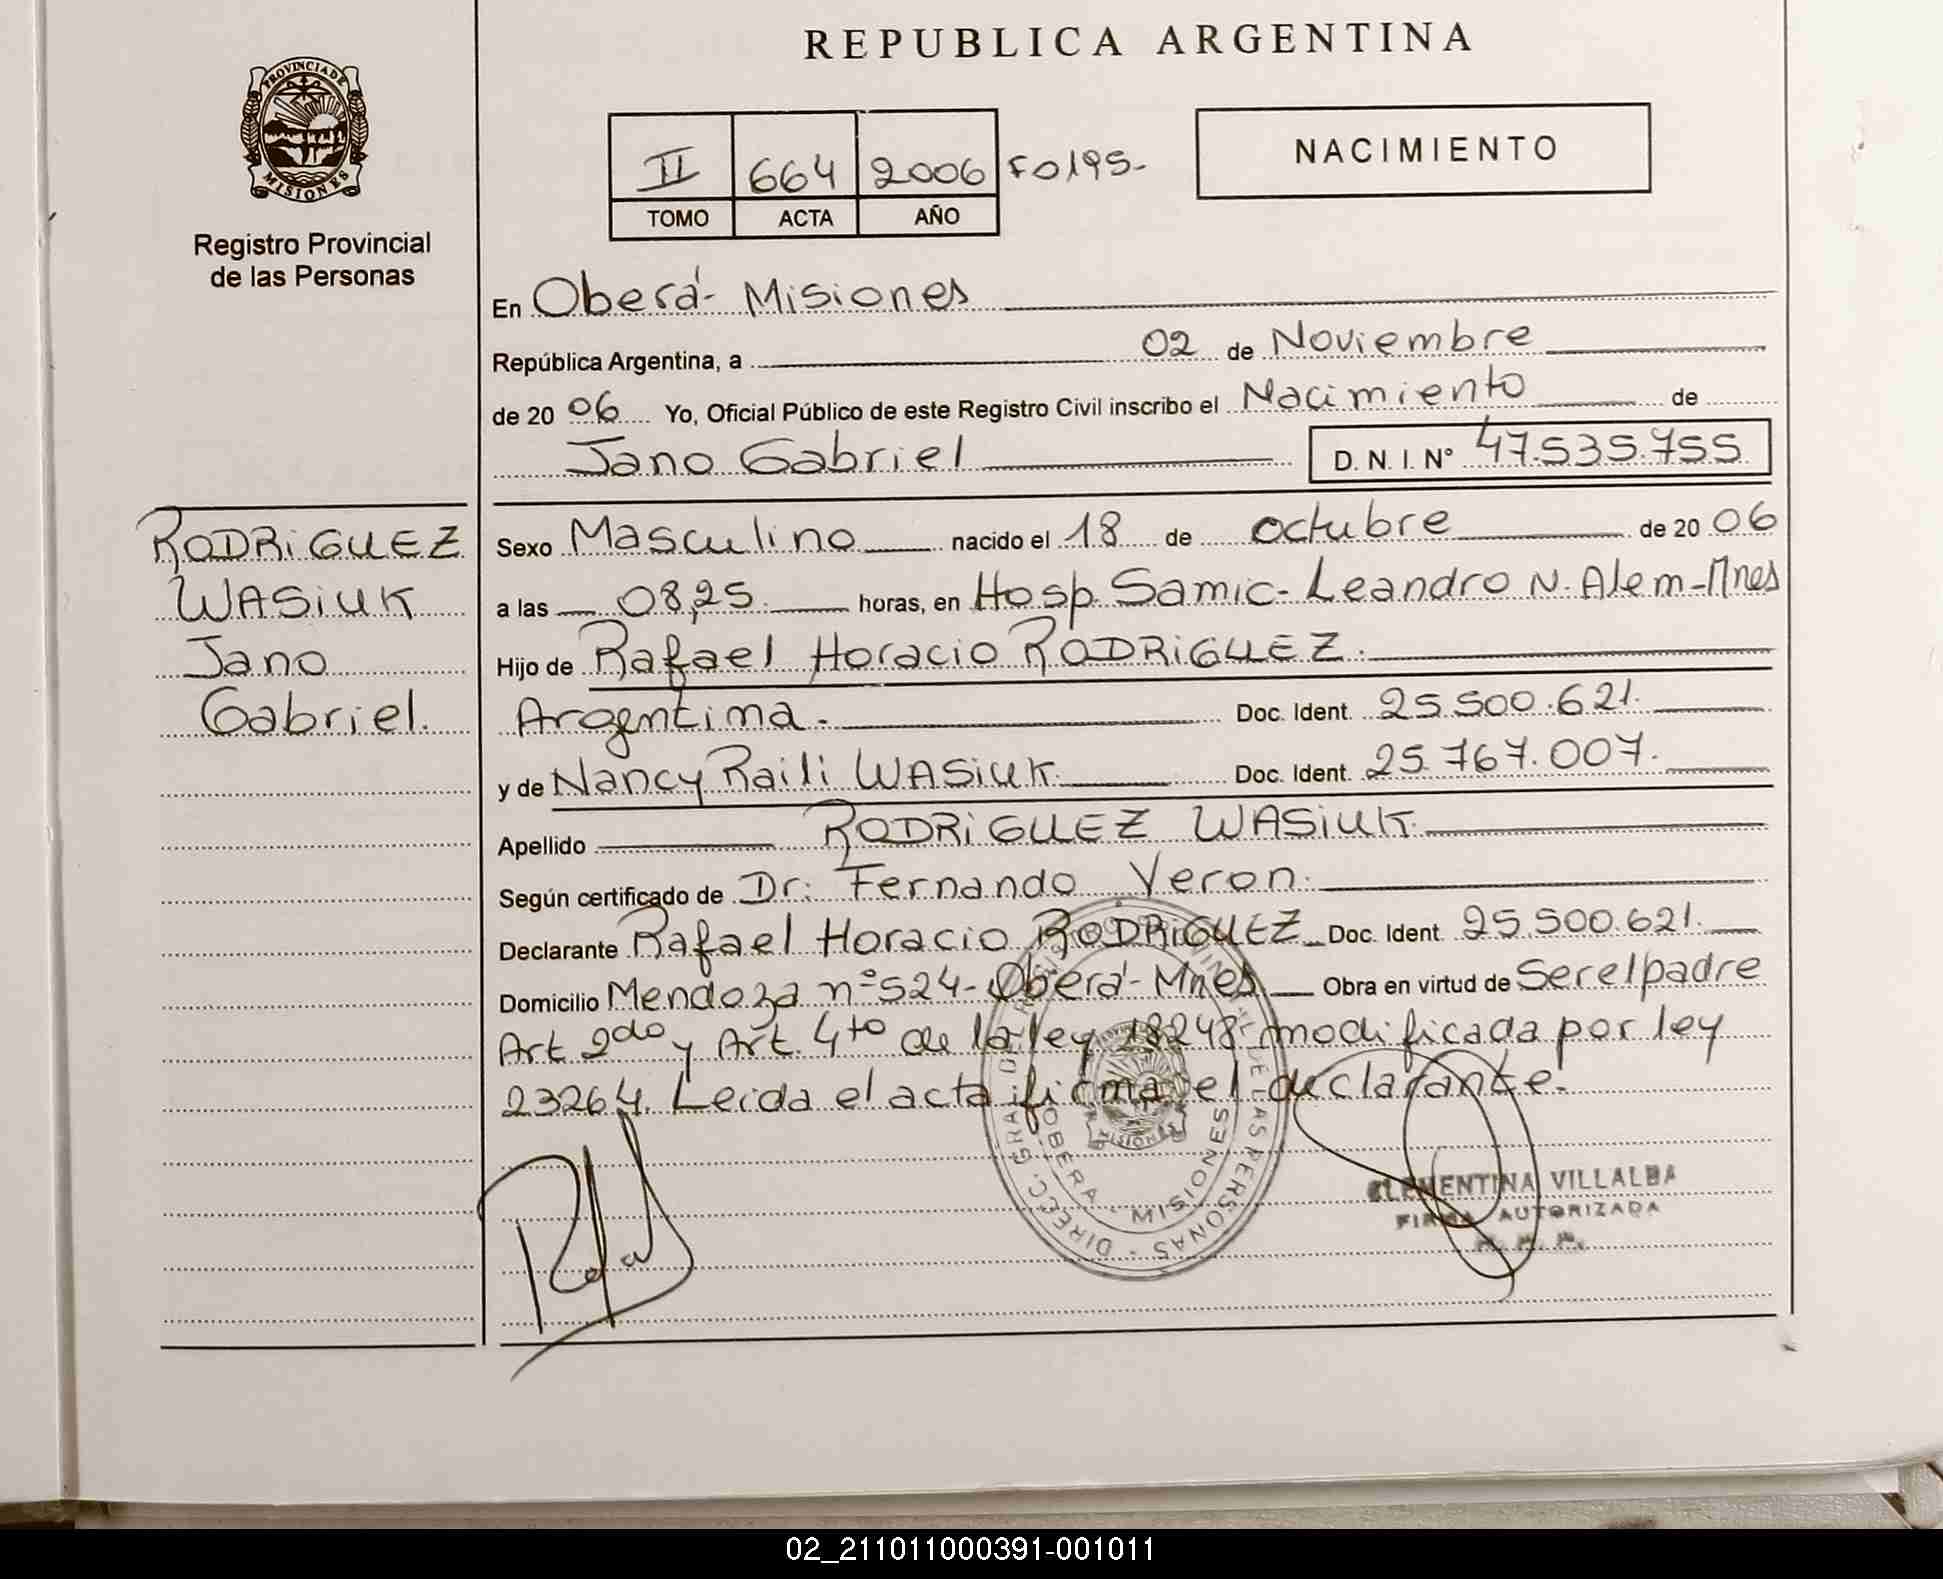 REPUBLICA ARGENTINA
PROVINCIA DE MISIONES
Registro Provincial
de las Personas
II 664 2006 Fo195.
TOMO ACTA AÑO
NACIMIENTO
En Oberá- Misiones
República Argentina, a 02 de Noviembre
de 2006 Yo, Oficial Público de este Registro Civil inscribo el Nacimiento de
Jano Gabriel D.N.I. N° 47.535.755
RODRiGUEZ
WASiUK
Jano
Gabriel.
Sexo Masculino nacido el 18 de octubre de 2006
a las 08,25 horas, en Hosp. Samic- Leandro N. Alem-Mnes
Hijo de Rafael Horacio RODRiGUEZ.
Argentina. Doc. Ident. 25.500.621.
y de Nancy Raili WASiUK Doc. Ident. 25.767.007.
Apellido RODRiGUEZ WASiUK
Según certificado de Dr. Fernando Veron.
Declarante Rafael Horacio RODRiGUEZ Doc. Ident. 25.500.621.
Domicilio Mendoza n° 524- Oberá- Mnes Obra en virtud de Ser el padre
Art 2do y Art. 4to de la ley 18248 modificada por ley
23264. Leida el acta firma el declarante.
DIRECC. GRAL. DE LAS PERSONAS
OBERA - MISIONES
MISIONES
CLEMENTINA VILLALBA
FIRMA AUTORIZADA
02_211011000391-001011